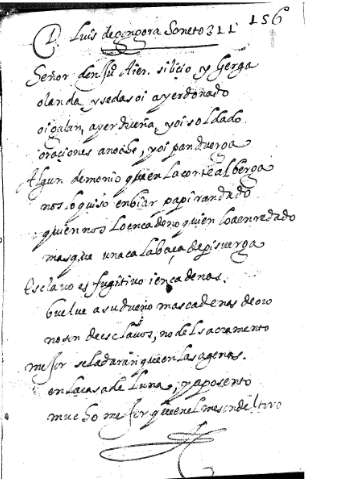 156
D. Luis de gongora Soneto 311
Señor don Juº Aier. silicio y Gerga
olanda y sedas oi ayer donado
oi galan, ayer dueña, y oi soldado
oraciones anoche, y oi panduerga
Algun demonio quien la corte alberga
nos lo quiso enbiar papirandado
quien nos lo encadeno quien lo a enredado
mas que una calabaça de pisuerga
Esclavo es fugitivo i en cadenas.
buelve a su dueño mas cadenas de oro
no son de esclavos, no del sacramento
mejor se la daran que en las agenas.
en la casa de Luna, y aposento
mucho mejor que en el meson del toro